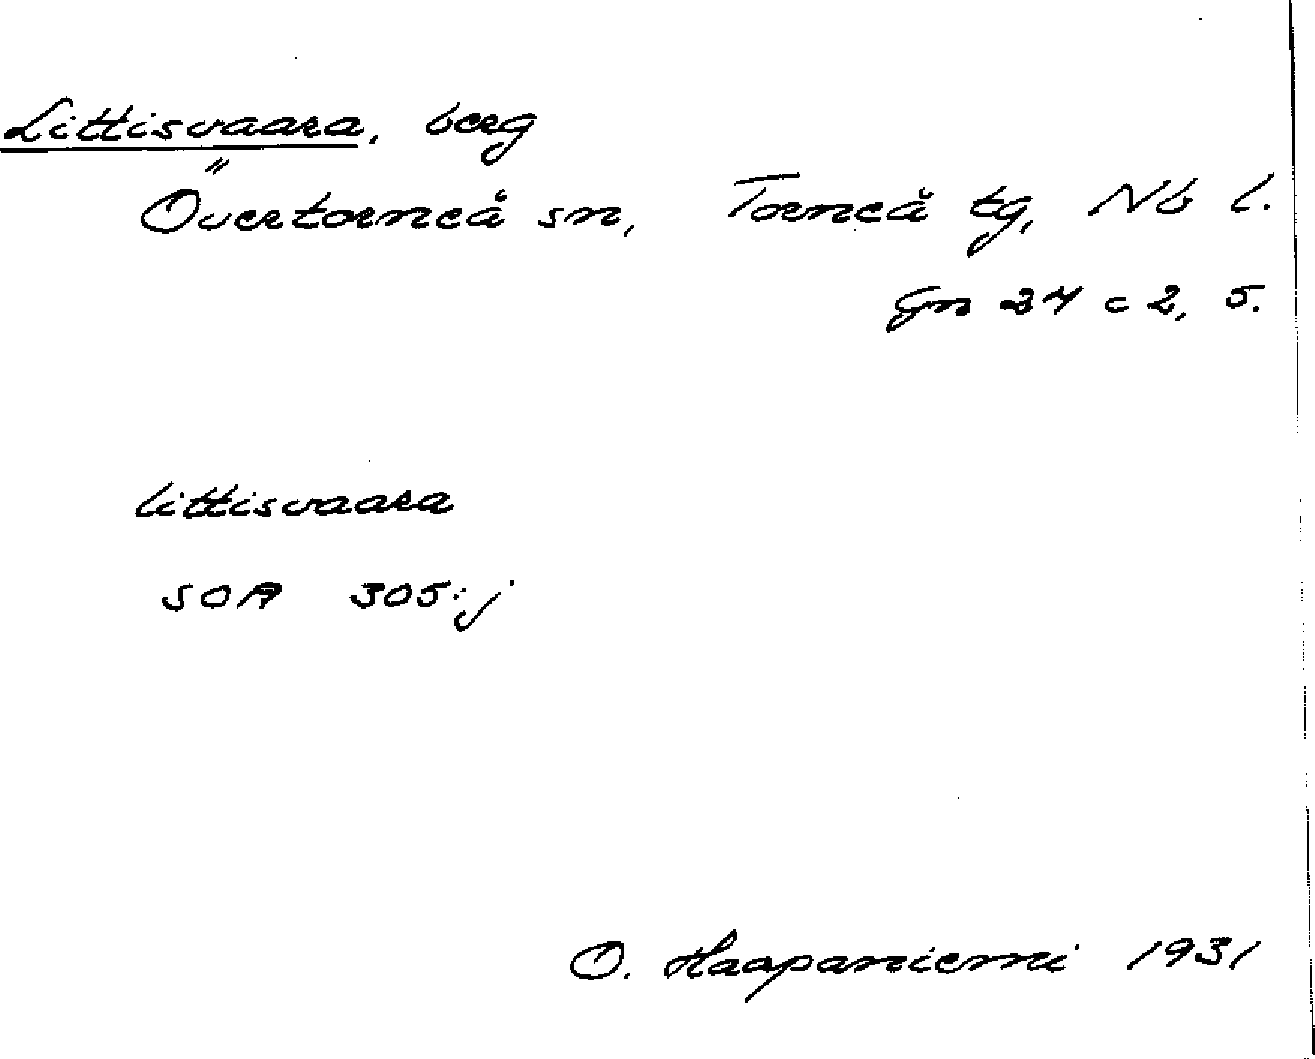 Littisvaara, berg
Övertorneå sn, Torneå tg, Nb l.
Gn 34 c 2, 5.
littisvaara
SOA 305:j
O. Haapaniemi 1931